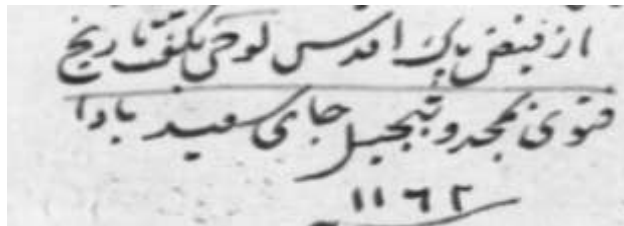 از فیض پاک اقدس لوحی بگفت تاریخ
فتوی بمجد و تبجیل جای سعید بادا
۱۱۶۲